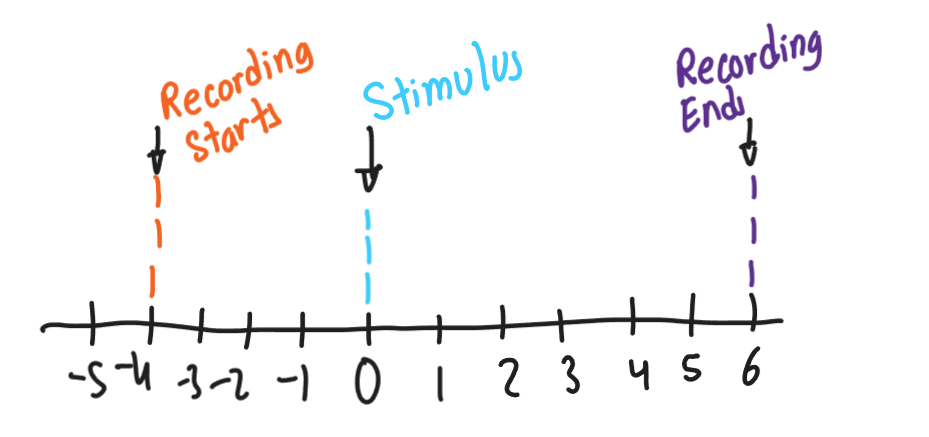 Recording
Starts
Stimulus
Recording
Ends
-5 -4 -3 -2 -1 0 1 2 3 4 5 6